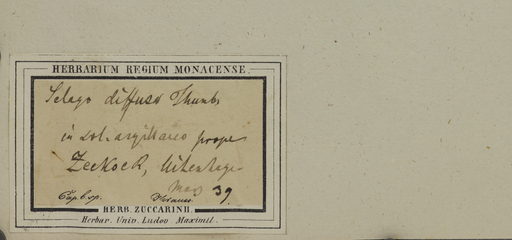 HERBARIUM REGIUM MONACENSE.
Selago diffusa Thunb.
in sol. argillaceo prope
Zeekoek, Uitenhage
39
Cap. b. sp. Krauss.
HERB. ZUCCARINII.
Herbar. Univ. Ludov. Maximil.